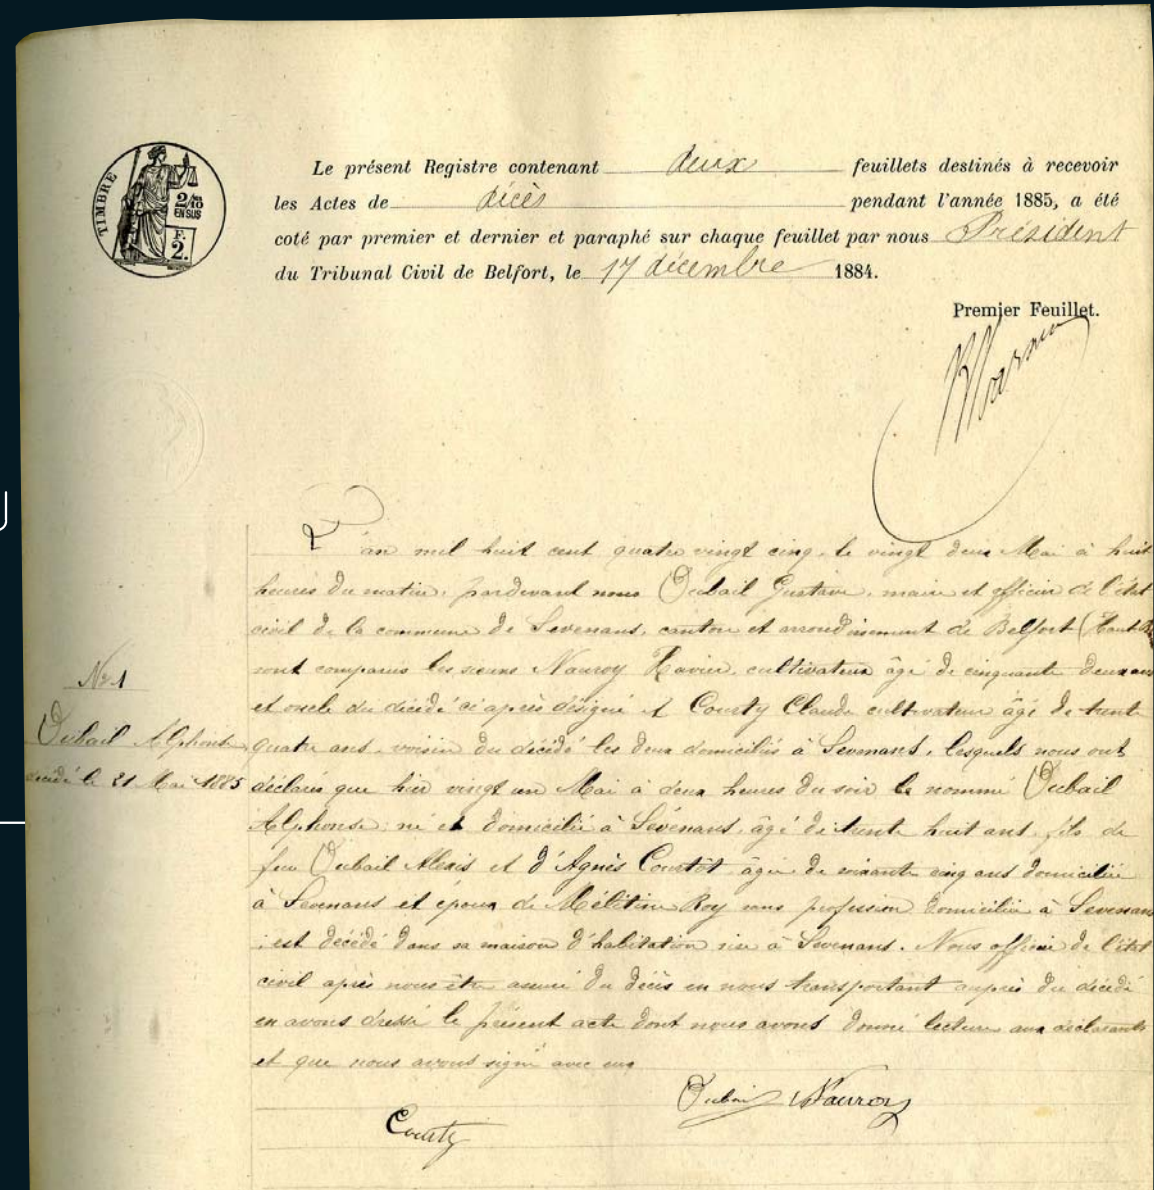 TIMBRE
2/10
EN SUS
F.
2.
Le présent Registre contenant deux feuillets destinés à recevoir
les Actes de décès pendant l'année 1885, a été
coté par premier et dernier et paraphé sur chaque feuillet par nous Président
du Tribunal Civil de Belfort, le 17 décembre 1884.
Premier Feuillet.
L'an mil huit cent quatre vingt cinq, le vingt deux Mai à huit
heures du matin, pardevant nous Oubail Gustave, maire et officier de l'état
civil de la commune de Sevenans, canton et arrondissement de Belfort (Haut-
sont comparus les sieurs Nauroy Xavier, cultivateur âgé de cinquante deux ans
et oncle du décédé ci après désigné et Courty Claude cultivateur âgé de trente
quatre ans, voisin du décédé les deux domiciliés à Sevenans, lesquels nous ont
déclaré que hier vingt un Mai à deux heures du soir le nommé Oubail
Alphonse, né et domicilié à Sévenans, âgé de trente huit ans, fils de
feu Oubail Alexis et d'Agnès Courtot âgée de soixante cinq ans domiciliée
à Sevenans et époux de Mélitine Roy sans profession domiciliée à Sevenans
, est décédé dans sa maison d'habitation sise à Sevenans. Nous officier de l'état
civil après nous être assuré du décès en nous transportant auprès du décédé
en avons dressé le présent acte dont nous avons donné lecture aux déclarants
et que nous avons signé avec eux
N° 1
Oubail Alphonse
décédé le 21 Mai 1885
Oubail Nauroy
Courty